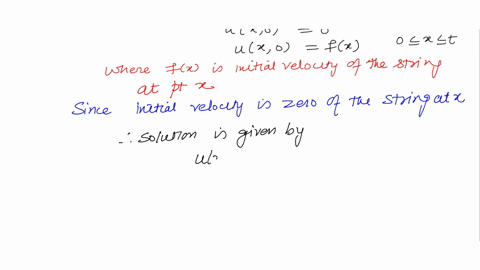 u(x,0) = 0
u(x,0) = f(x) 0 ≤ x ≤ t
where f(x) is initial velocity of the string
at pt x
Since initial velocity is zero of the string at x
∴ solution is given by
u(